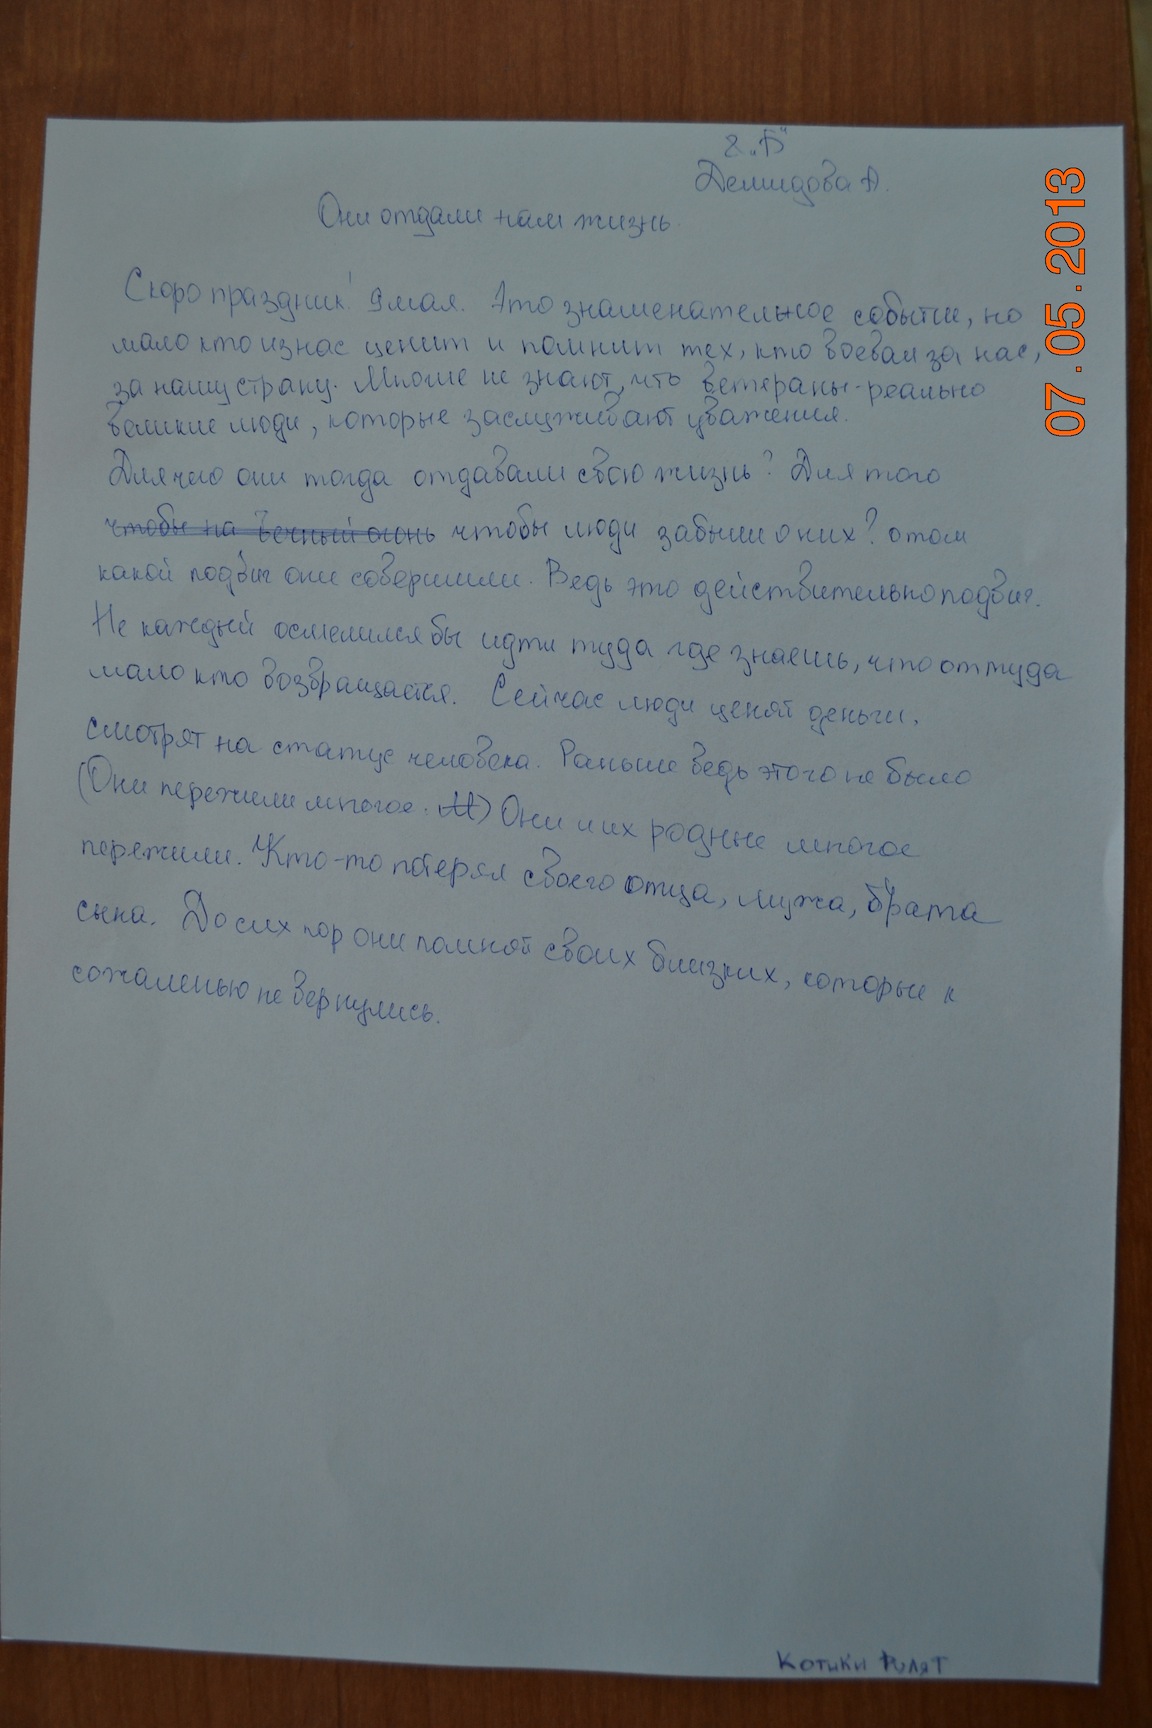 8 „Б"
Демидова А.
Они отдали нам жизнь.
07.05.2013
Скоро праздник! 9 мая. Это знаменательное событие, но
мало кто из нас ценит и помнит тех, кто воевал за нас,
за нашу страну. Многие не знают, что ветераны-реально
великие люди, которые заслуживают уважения.
Для чего они тогда отдавали свою жизнь? Для того
чтобы на Вечный огонь чтобы люди забыли о них? о том
какой подвиг они совершили. Ведь это действительно подвиг.
Не каждый осмелился бы идти туда где знаешь, что оттуда
мало кто возвращается. Сейчас люди ценят деньги,
смотрят на статус человека. Раньше ведь этого не было
(Они пережили многое. М) Они и их родные многое
пережили. Кто-то потерял своего отца, мужа, брата
сына. До сих пор они помнят своих близких, которые к
сожаленью не вернулись.
Котики Рулят